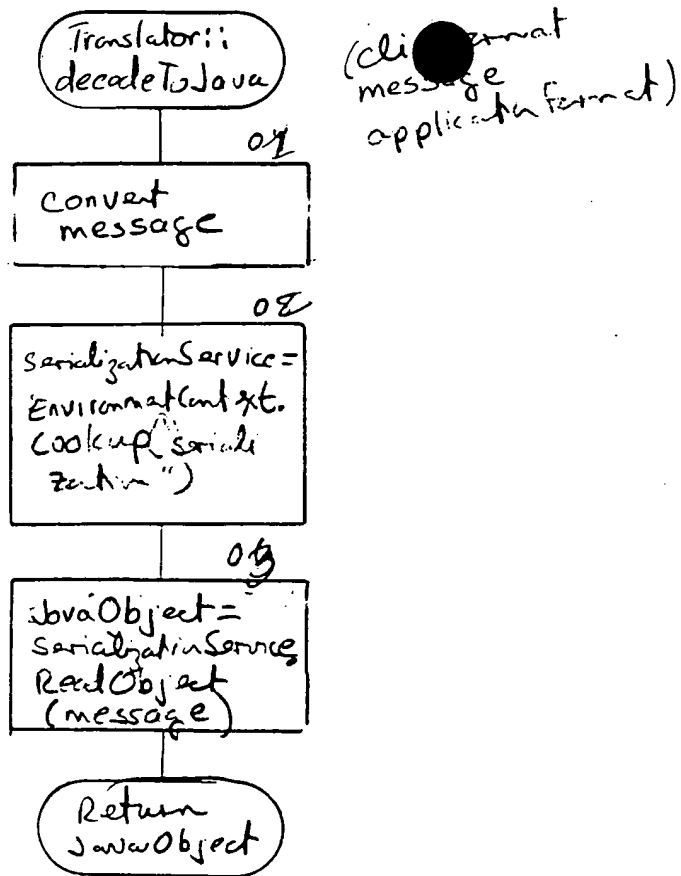 Translator::
decodeToJava
message
application format)
01
Convert
message
02
SerializationService=
EnvironmentContext.
Lookup("seriali
zation")
03
JavaObject=
SerializationService
ReadObject
(message)
Return
JavaObject